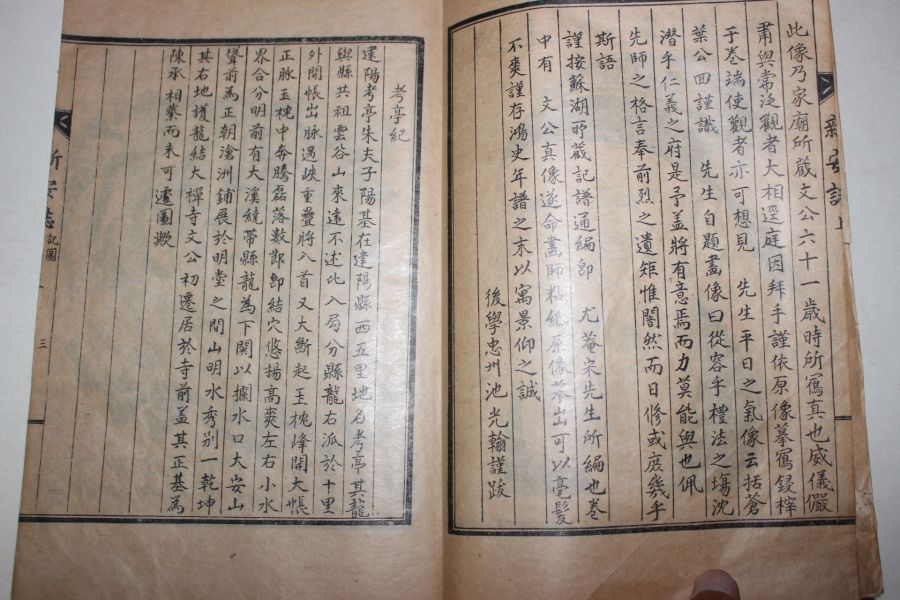 此像乃家廟所蔵文公六十一歳時所寫真也威儀儼
肅與常泛觀者大相逕庭因拜手謹依原像摹寫鋟榟
于卷端使觀者亦可想見 先生平日之氣像云括蒼
葉公回謹識 先生自題畫像曰從容乎禮法之塲沈
潛乎仁義之府是予盖將有意焉而力莫能與也佩
先師之格言奉前烈之遺矩惟闇然而日修或庶幾乎
斯語
謹按蘇湖所蔵記譜通編卽 尤菴宋先生所編也卷
中有 文公真像遂命畵師粘紙原像摹出可以毫髮
不爽謹存鴻史年譜之末以寓景仰之誠
後學忠州池光翰謹跋
新安誌上
考亭紀
建陽考亭朱夫子陽基在建陽縣西五里地名考亭其龍
與縣共祖雲谷山來遠不述比入局分縣龍右派於十里
外開帳出脉過峽重疊將入首又大断起玉枕峰開大帳
正脉玉枕中奔騰磊落數節卽結穴悠揚高爽左右小水
界合分明前有大溪繞帶縣龍為下関以攔水口大安山
聳前為正朝滄洲鋪展於明堂之間山明水秀别一乾坤
其右地護龍結大禪寺文公初遷居於寺前盖其正基為
陳丞相墓而未可遽圖歟
新安誌 記圖 三